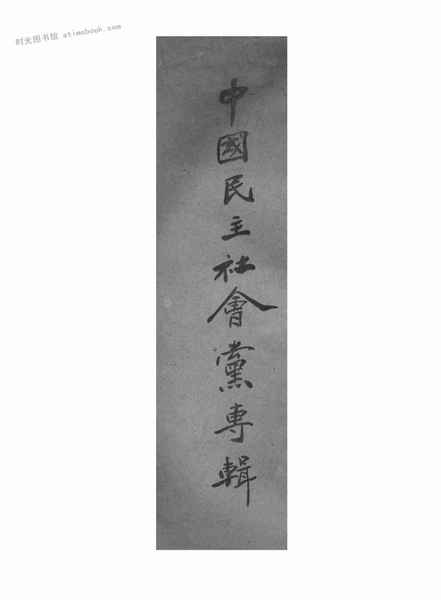 时光图书馆 atimebook.com
中國民主社會黨專輯